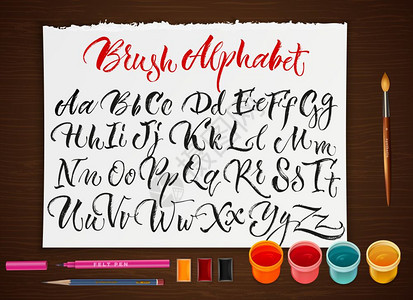 Brush Alphabet
Aa Bb Cc Dd Ee Ff Gg
Hh Ii Jj Kk Ll Mm
Nn Oo Pp Qq Rr Ss Tt
Uu Vv Ww Xx Yy Zz
FELT PEN